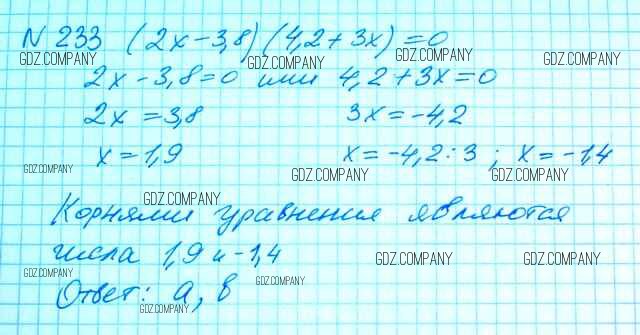 N 233 (2x-3,8)(4,2+3x)=0
GDZ.COMPANY GDZ.COMPANY GDZ.COMPANY
2x-3,8=0 или 4,2+3x=0
2x=3,8 3x=-4,2
GDZ.COMPANY GDZ.COMPANY GDZ.COMPANY
x=1,9 x=-4,2:3 ; x=-1,4
GDZ.COMPANY GDZ.COMPANY GDZ.COMPANY
GDZ.COMPANY
Корнями уравнения являются
числа 1,9 и -1,4
GDZ.COMPANY GDZ.COMPANY GDZ.COMPANY GDZ.COMPANY
Ответ: а, в
GDZ.COMPANY GDZ.COMPANY